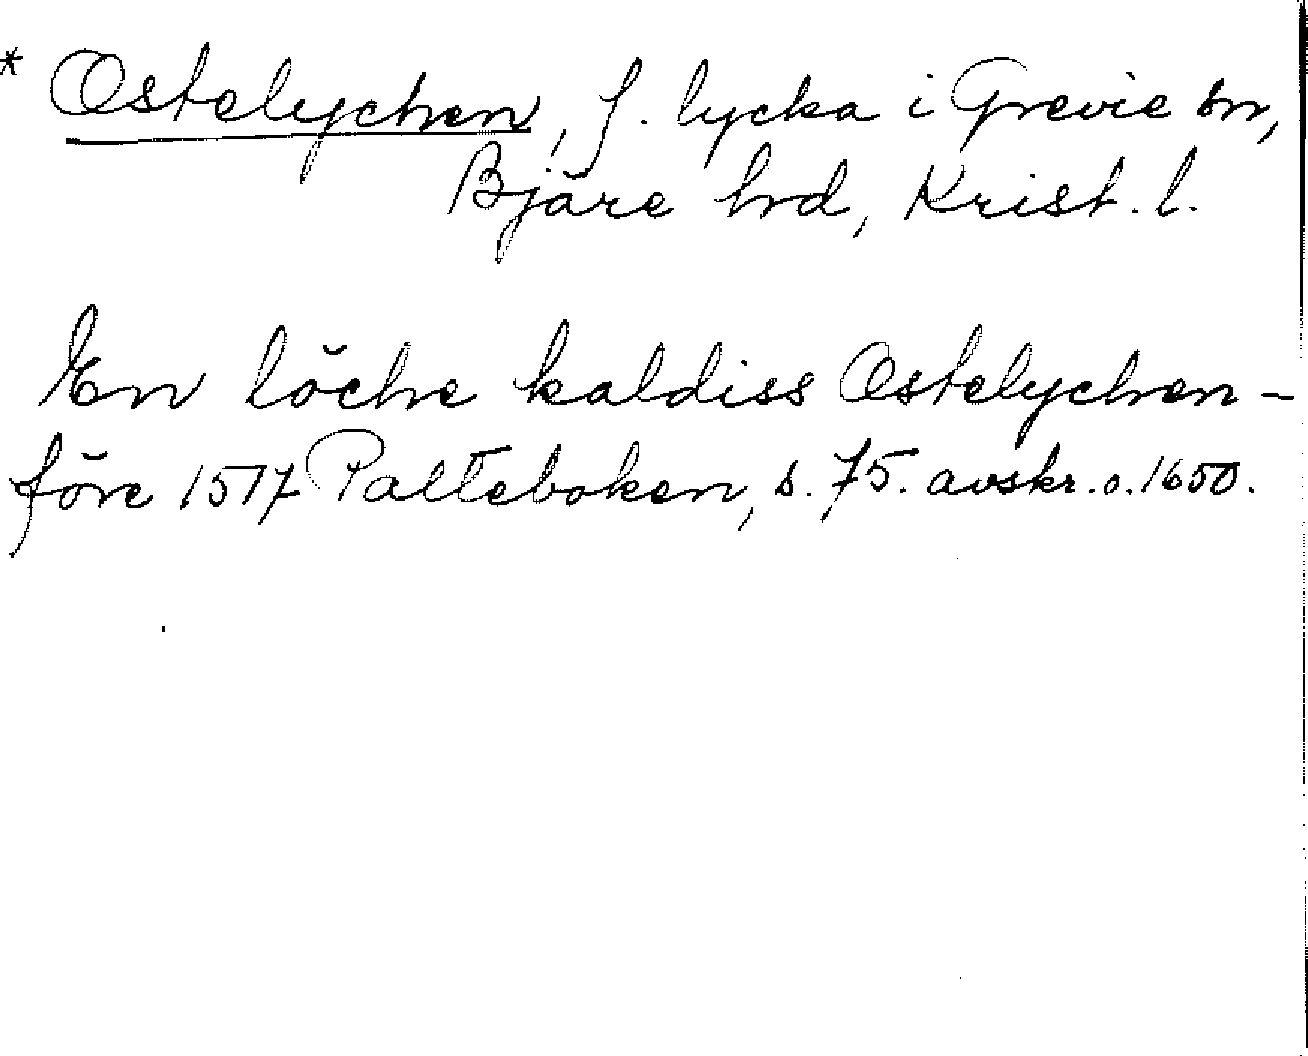 * Ostelychen, f. lycka i Grevie sn,
Bjäre hrd, Krist. l.
En löche kaldiss Ostelychen -
före 1517 Palteboken, s. 75. avskr. o. 1650.